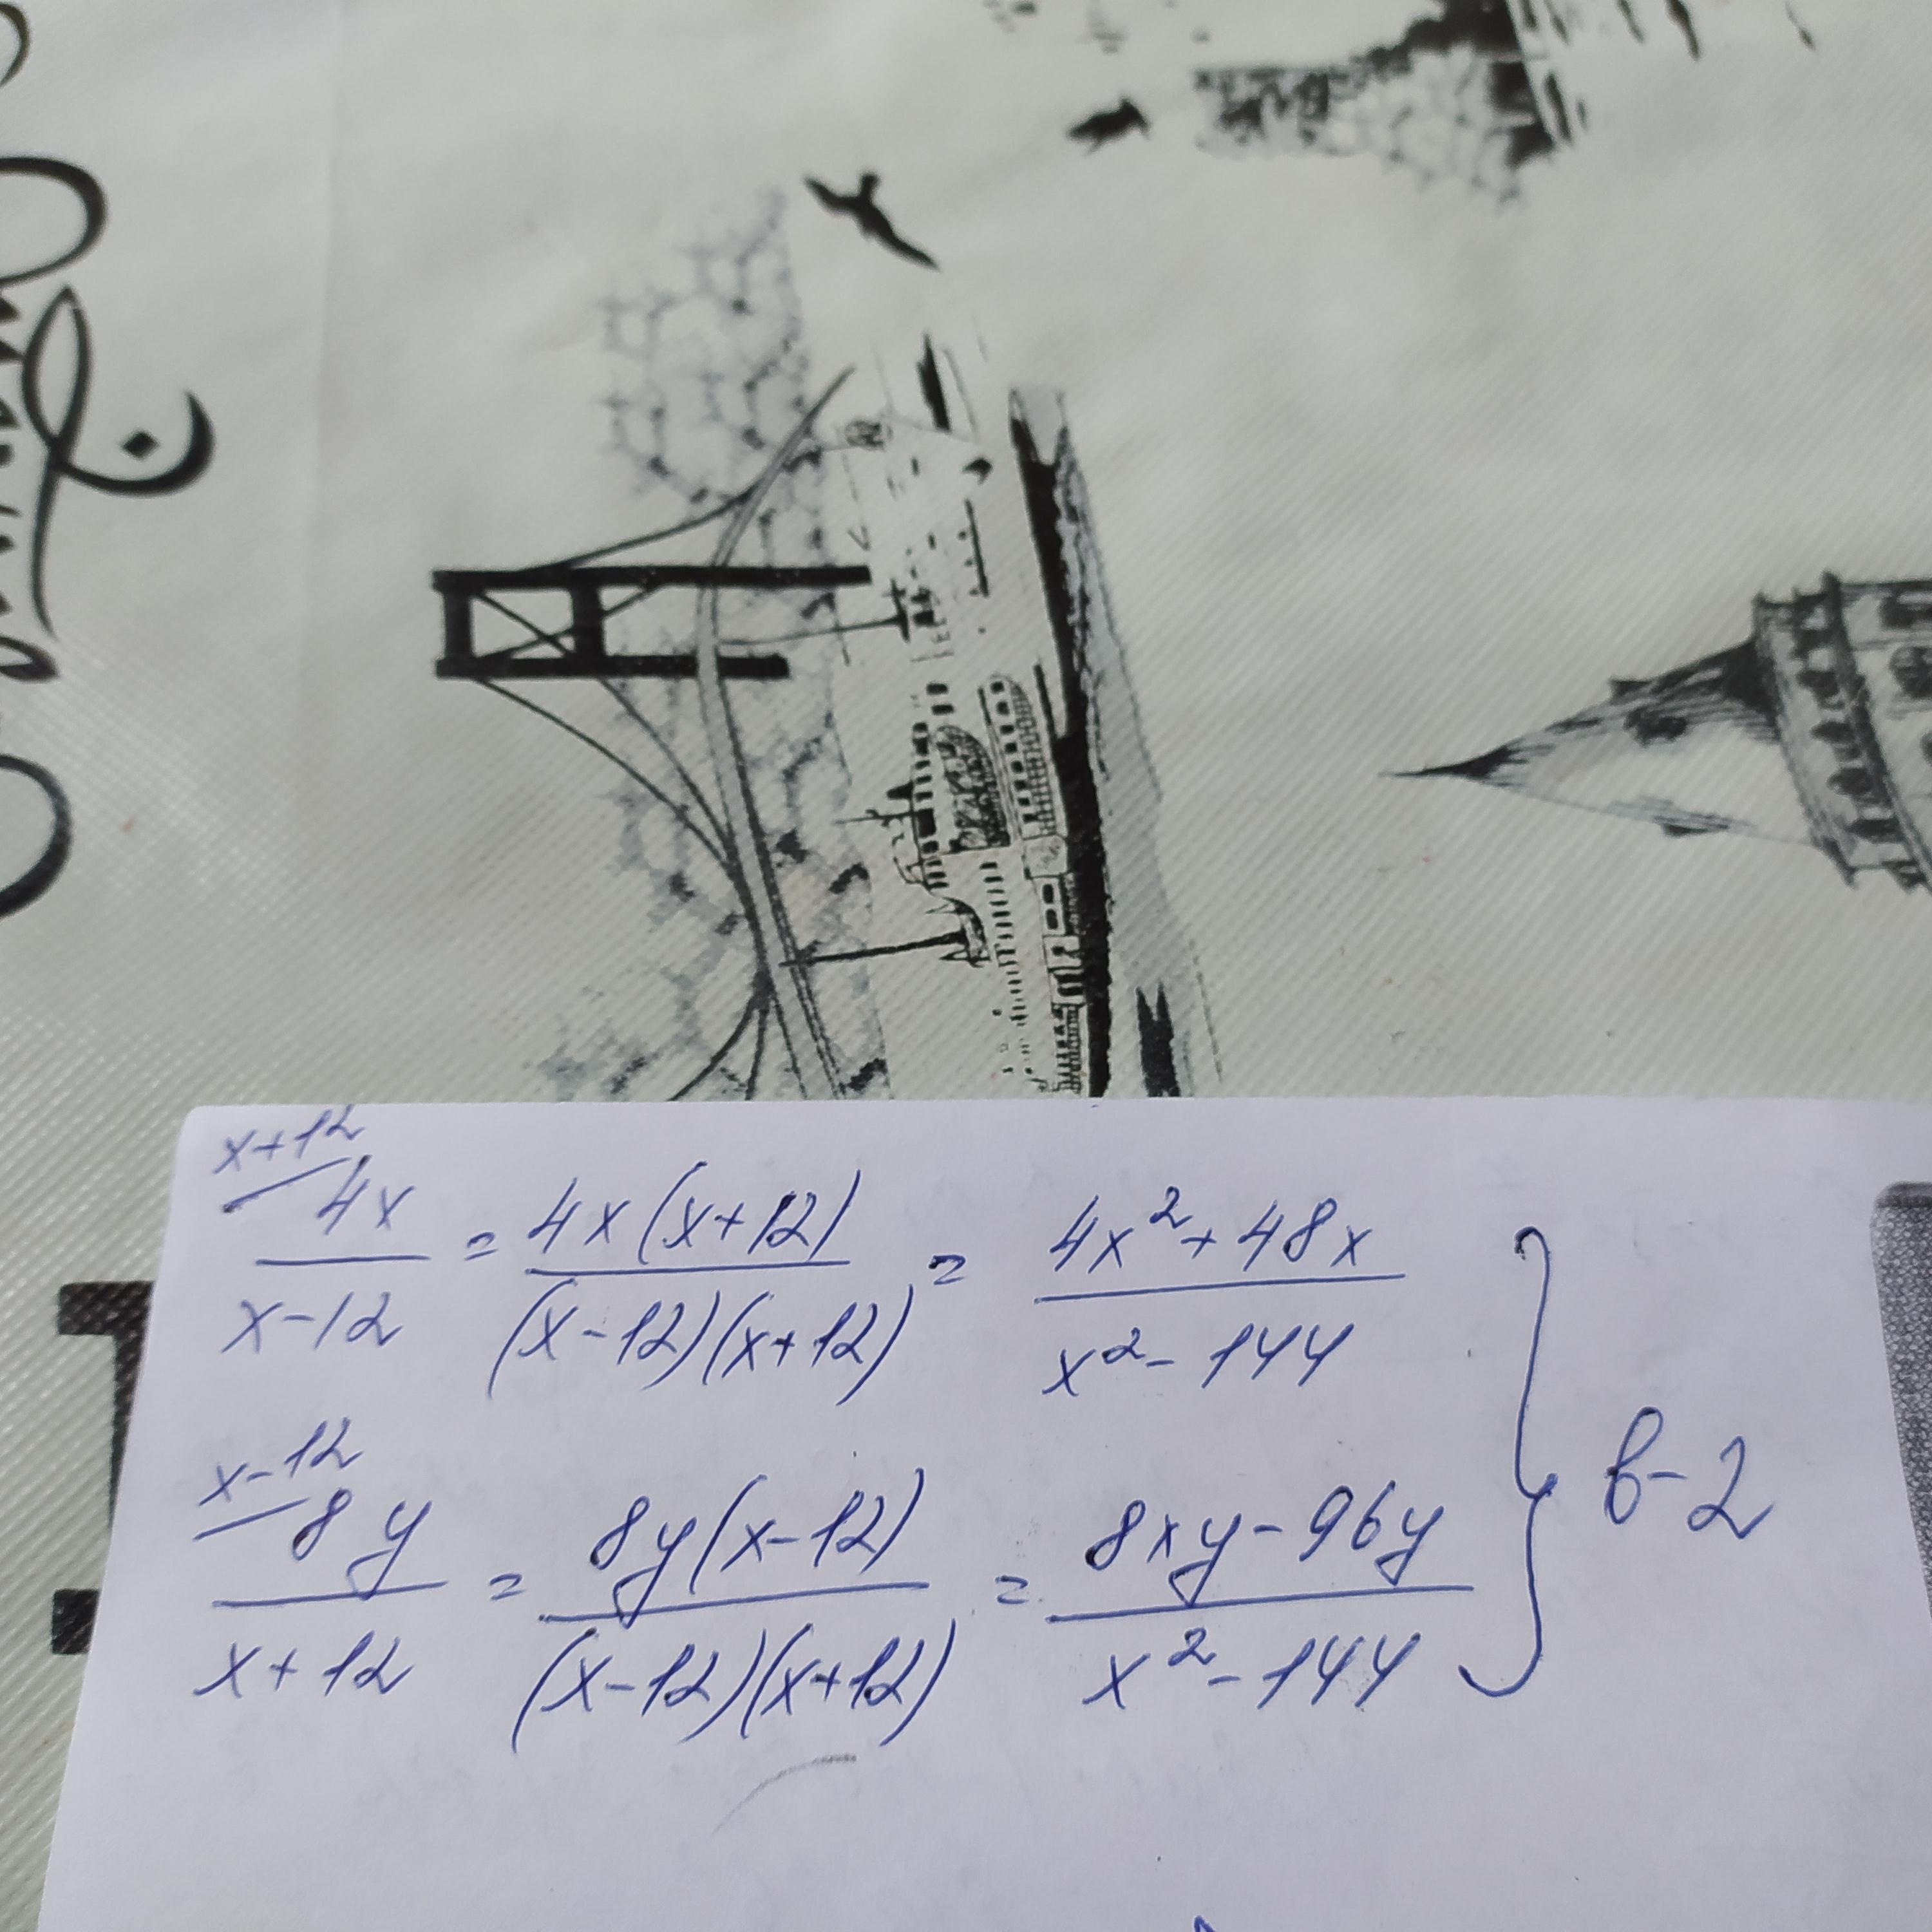 x+12
4x/(x-12) = 4x(x+12)/((x-12)(x+12)) = (4x²+48x)/(x²-144)
x-12
8y/(x+12) = 8y(x-12)/((x-12)(x+12)) = (8xy-96y)/(x²-144)
в-2